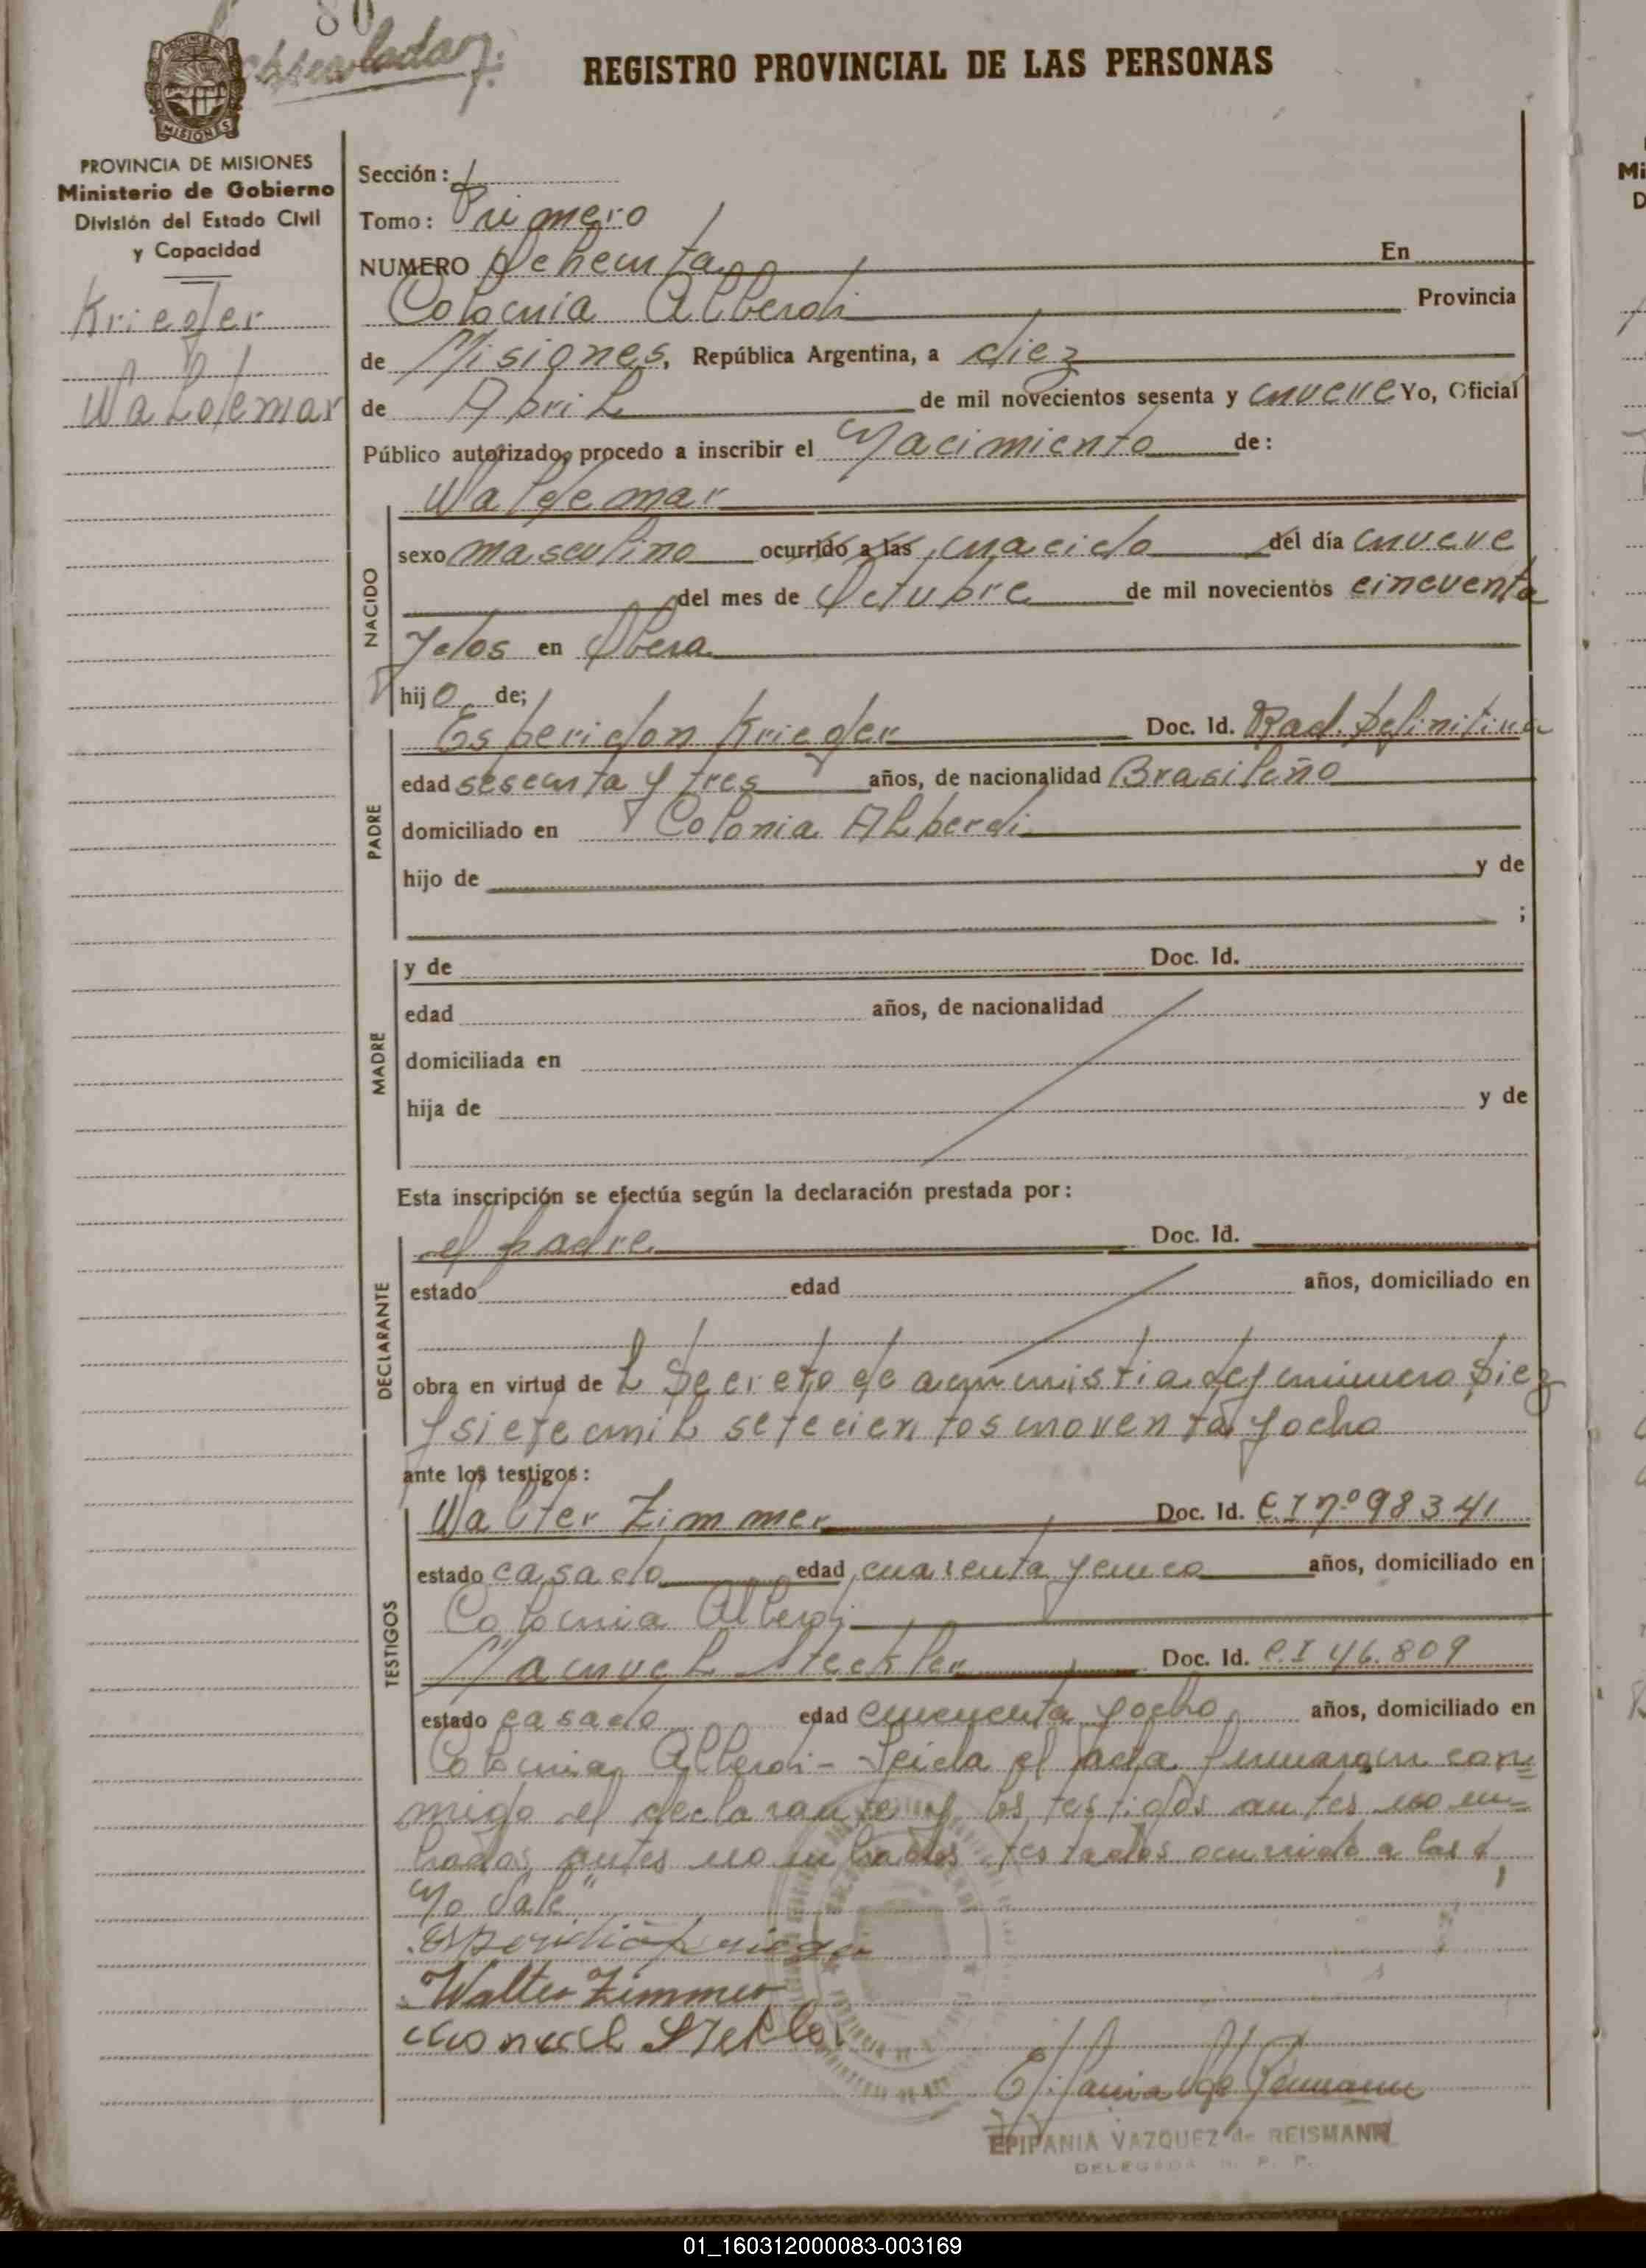 80
REGISTRO PROVINCIAL DE LAS PERSONAS
MISIONES
PROVINCIA DE MISIONES
Ministerio de Gobierno
División del Estado Civil
y Capacidad
Krieger
Waldemar
Sección:
Tomo: Primero
NUMERO Ochenta En
Colonia Alberdi Provincia
de Misiones, República Argentina, a diez
de Abril de mil novecientos sesenta y nueve Yo, Oficial
Público autorizado, procedo a inscribir el Nacimiento de:
NACIDO
Waldemar
sexo masculino ocurrido a las, nacido del día nueve
del mes de Octubre de mil novecientos cincuenta
y dos en Obera
hijo de;
PADRE
Esperidon Krieger Doc. Id. Rad. Definitiva
edad sesenta y tres años, de nacionalidad Brasileño
domiciliado en Colonia Alberdi
hijo de y de
;
MADRE
y de Doc. Id.
edad años, de nacionalidad
domiciliada en
hija de y de
Esta inscripción se efectúa según la declaración prestada por:
DECLARANTE
el padre Doc. Id.
estado edad años, domiciliado en
obra en virtud de L Decreto de amnistia ley número Diez
y siete mil setecientos noventa y ocho
ante los testigos:
TESTIGOS
Walter Zimmer Doc. Id. C.I Nº 98341
estado casado edad cuarenta y cinco años, domiciliado en
Colonia Alberdi
Manuel Steckler Doc. Id. C.I 46.809
estado casado edad cincuenta y ocho años, domiciliado en
Colonia Alberdi - Leida el acta firmaron con=
migo el declarante y los testigos antes nom=
brados, antes nombrados testados ocurrido a las
No Vale
Walter Zimmer
EPIFANIA VAZQUEZ de REISMANN
DELEGADA R. P. P.
01_160312000083-003169